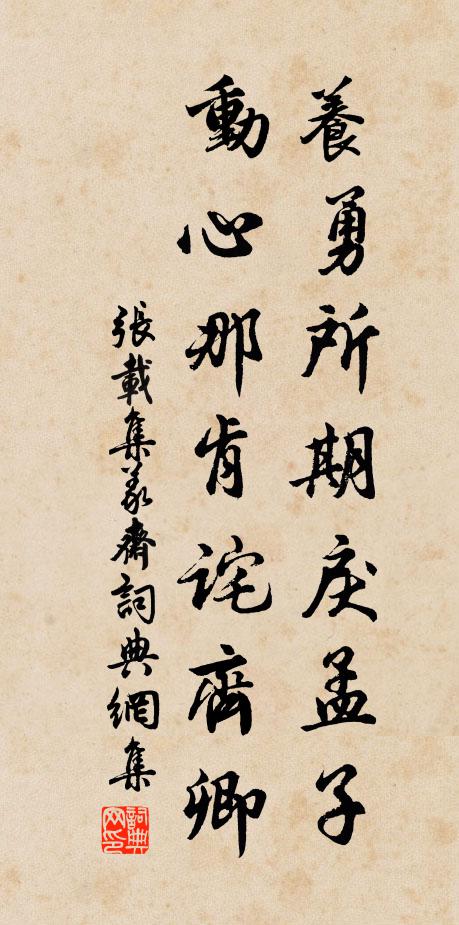 養勇所期戾孟子
動心那肯詫齊卿
張載集義齋詞典網集
詞典网印